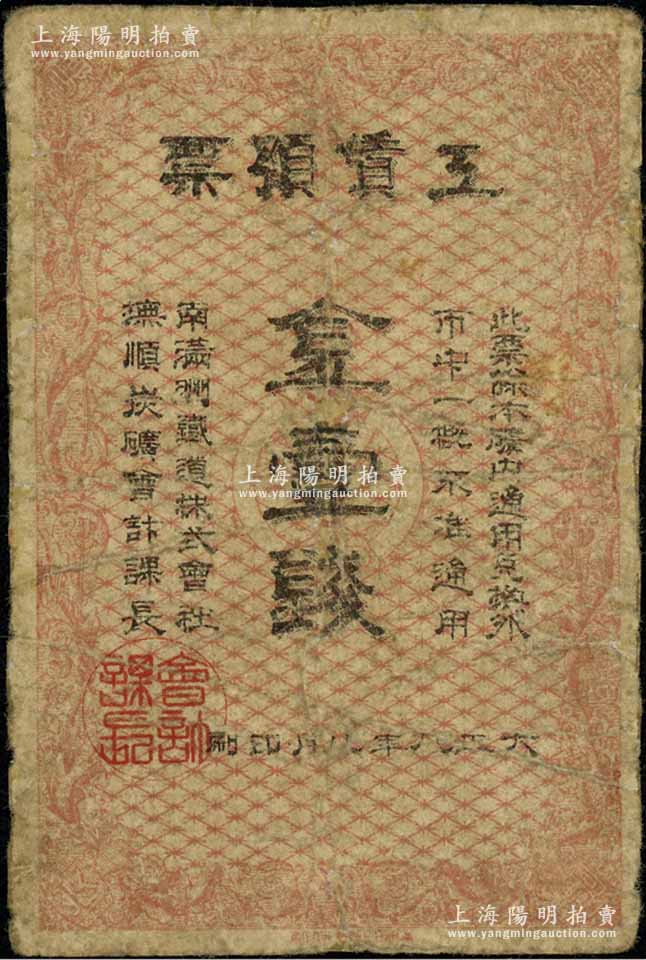 上海陽明拍賣
www.yangmingauction.com
工賃領票
此票除本礦内通用兌換外
市中一概不准通用
金壹錢
南滿洲鐵道株式會社
撫順炭礦會計課長
上海陽明拍賣
www.yangmingauction.com
會計課長印
大正八年八月印刷
上海陽明拍賣
www.yangmingauction.com